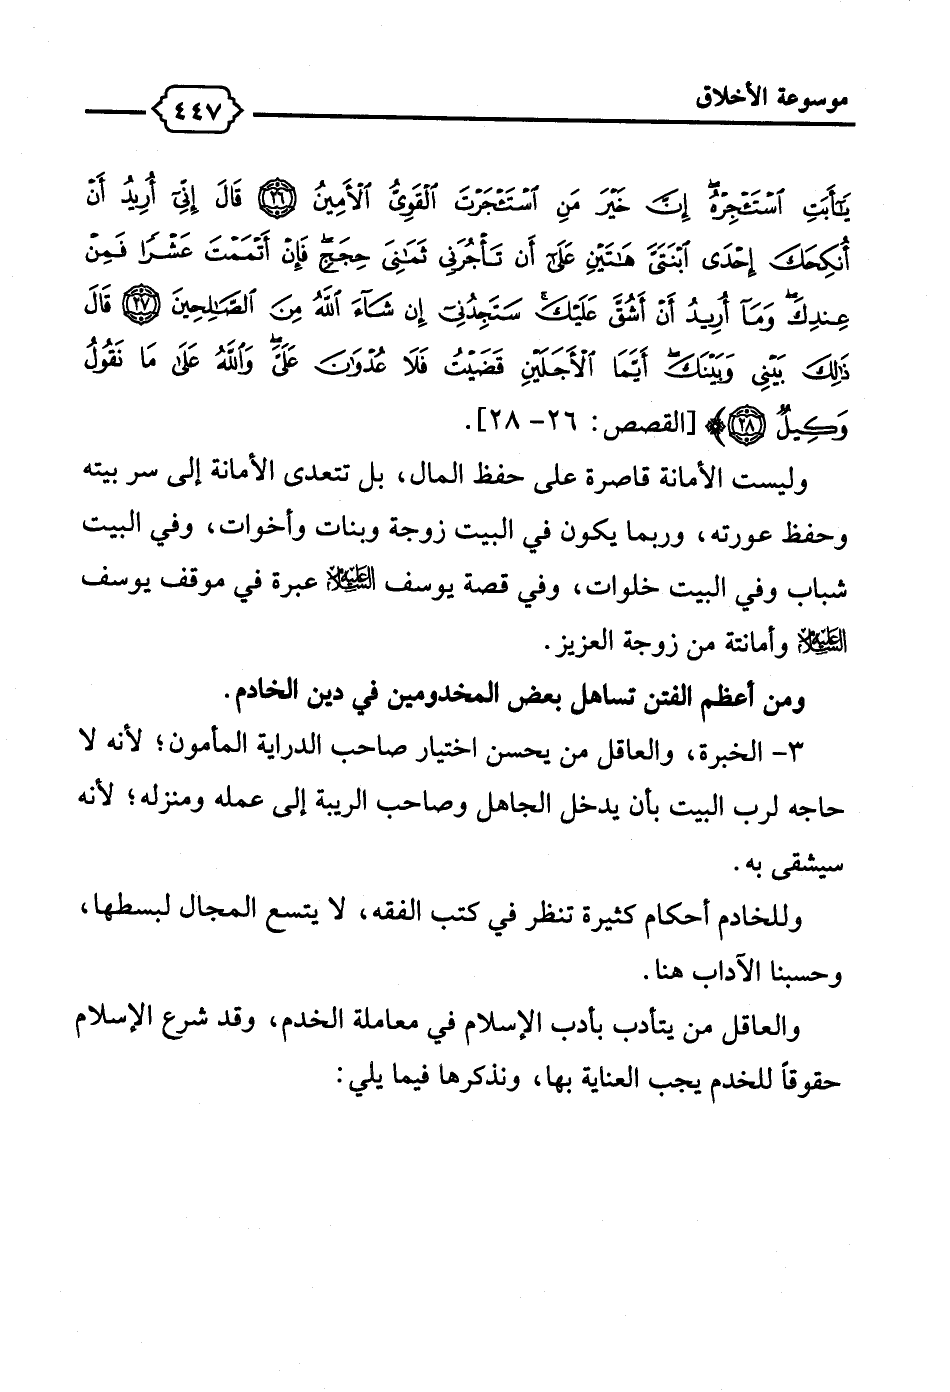 موسوعة الأخلاق
٤٤٧
يَٰٓأَبَتِ ٱسْتَـْٔجِرْهُ ۖ إِنَّ خَيْرَ مَنِ ٱسْتَـْٔجَرْتَ ٱلْقَوِىُّ ٱلْأَمِينُ ﴿٢٦﴾ قَالَ إِنِّىٓ أُرِيدُ أَنْ
أُنكِحَكَ إِحْدَى ٱبْنَتَىَّ هَٰتَيْنِ عَلَىٰٓ أَن تَأْجُرَنِى ثَمَٰنِىَ حِجَجٍ ۖ فَإِنْ أَتْمَمْتَ عَشْرًا فَمِنْ
عِندِكَ ۖ وَمَآ أُرِيدُ أَنْ أَشُقَّ عَلَيْكَ ۚ سَتَجِدُنِىٓ إِن شَآءَ ٱللَّهُ مِنَ ٱلصَّٰلِحِينَ ﴿٢٧﴾ قَالَ
ذَٰلِكَ بَيْنِى وَبَيْنَكَ ۖ أَيَّمَا ٱلْأَجَلَيْنِ قَضَيْتُ فَلَا عُدْوَٰنَ عَلَىَّ ۖ وَٱللَّهُ عَلَىٰ مَا نَقُولُ
وَكِيلٌ ﴿٢٨﴾ [القصص: ٢٦- ٢٨].
وليست الأمانة قاصرة على حفظ المال، بل تتعدى الأمانة إلى سر بيته
وحفظ عورته، وربما يكون في البيت زوجة وبنات وأخوات، وفي البيت
شباب وفي البيت خلوات، وفي قصة يوسف عليه السلام عبرة في موقف يوسف
عليه السلام وأمانتة من زوجة العزيز.
ومن أعظم الفتن تساهل بعض المخدومين في دين الخادم.
٣- الخبرة، والعاقل من يحسن اختيار صاحب الدراية المأمون؛ لأنه لا
حاجه لرب البيت بأن يدخل الجاهل وصاحب الريبة إلى عمله ومنزله؛ لأنه
سيشقى به.
وللخادم أحكام كثيرة تنظر في كتب الفقه، لا يتسع المجال لبسطها،
وحسبنا الآداب هنا.
والعاقل من يتأدب بأدب الإسلام في معاملة الخدم، وقد شرع الإسلام
حقوقاً للخدم يجب العناية بها، ونذكرها فيما يلي: